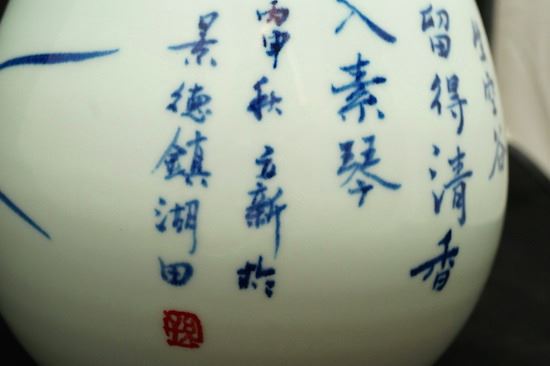 空谷
留得清香
入素琴
丙申秋立新於
景德鎮湖田